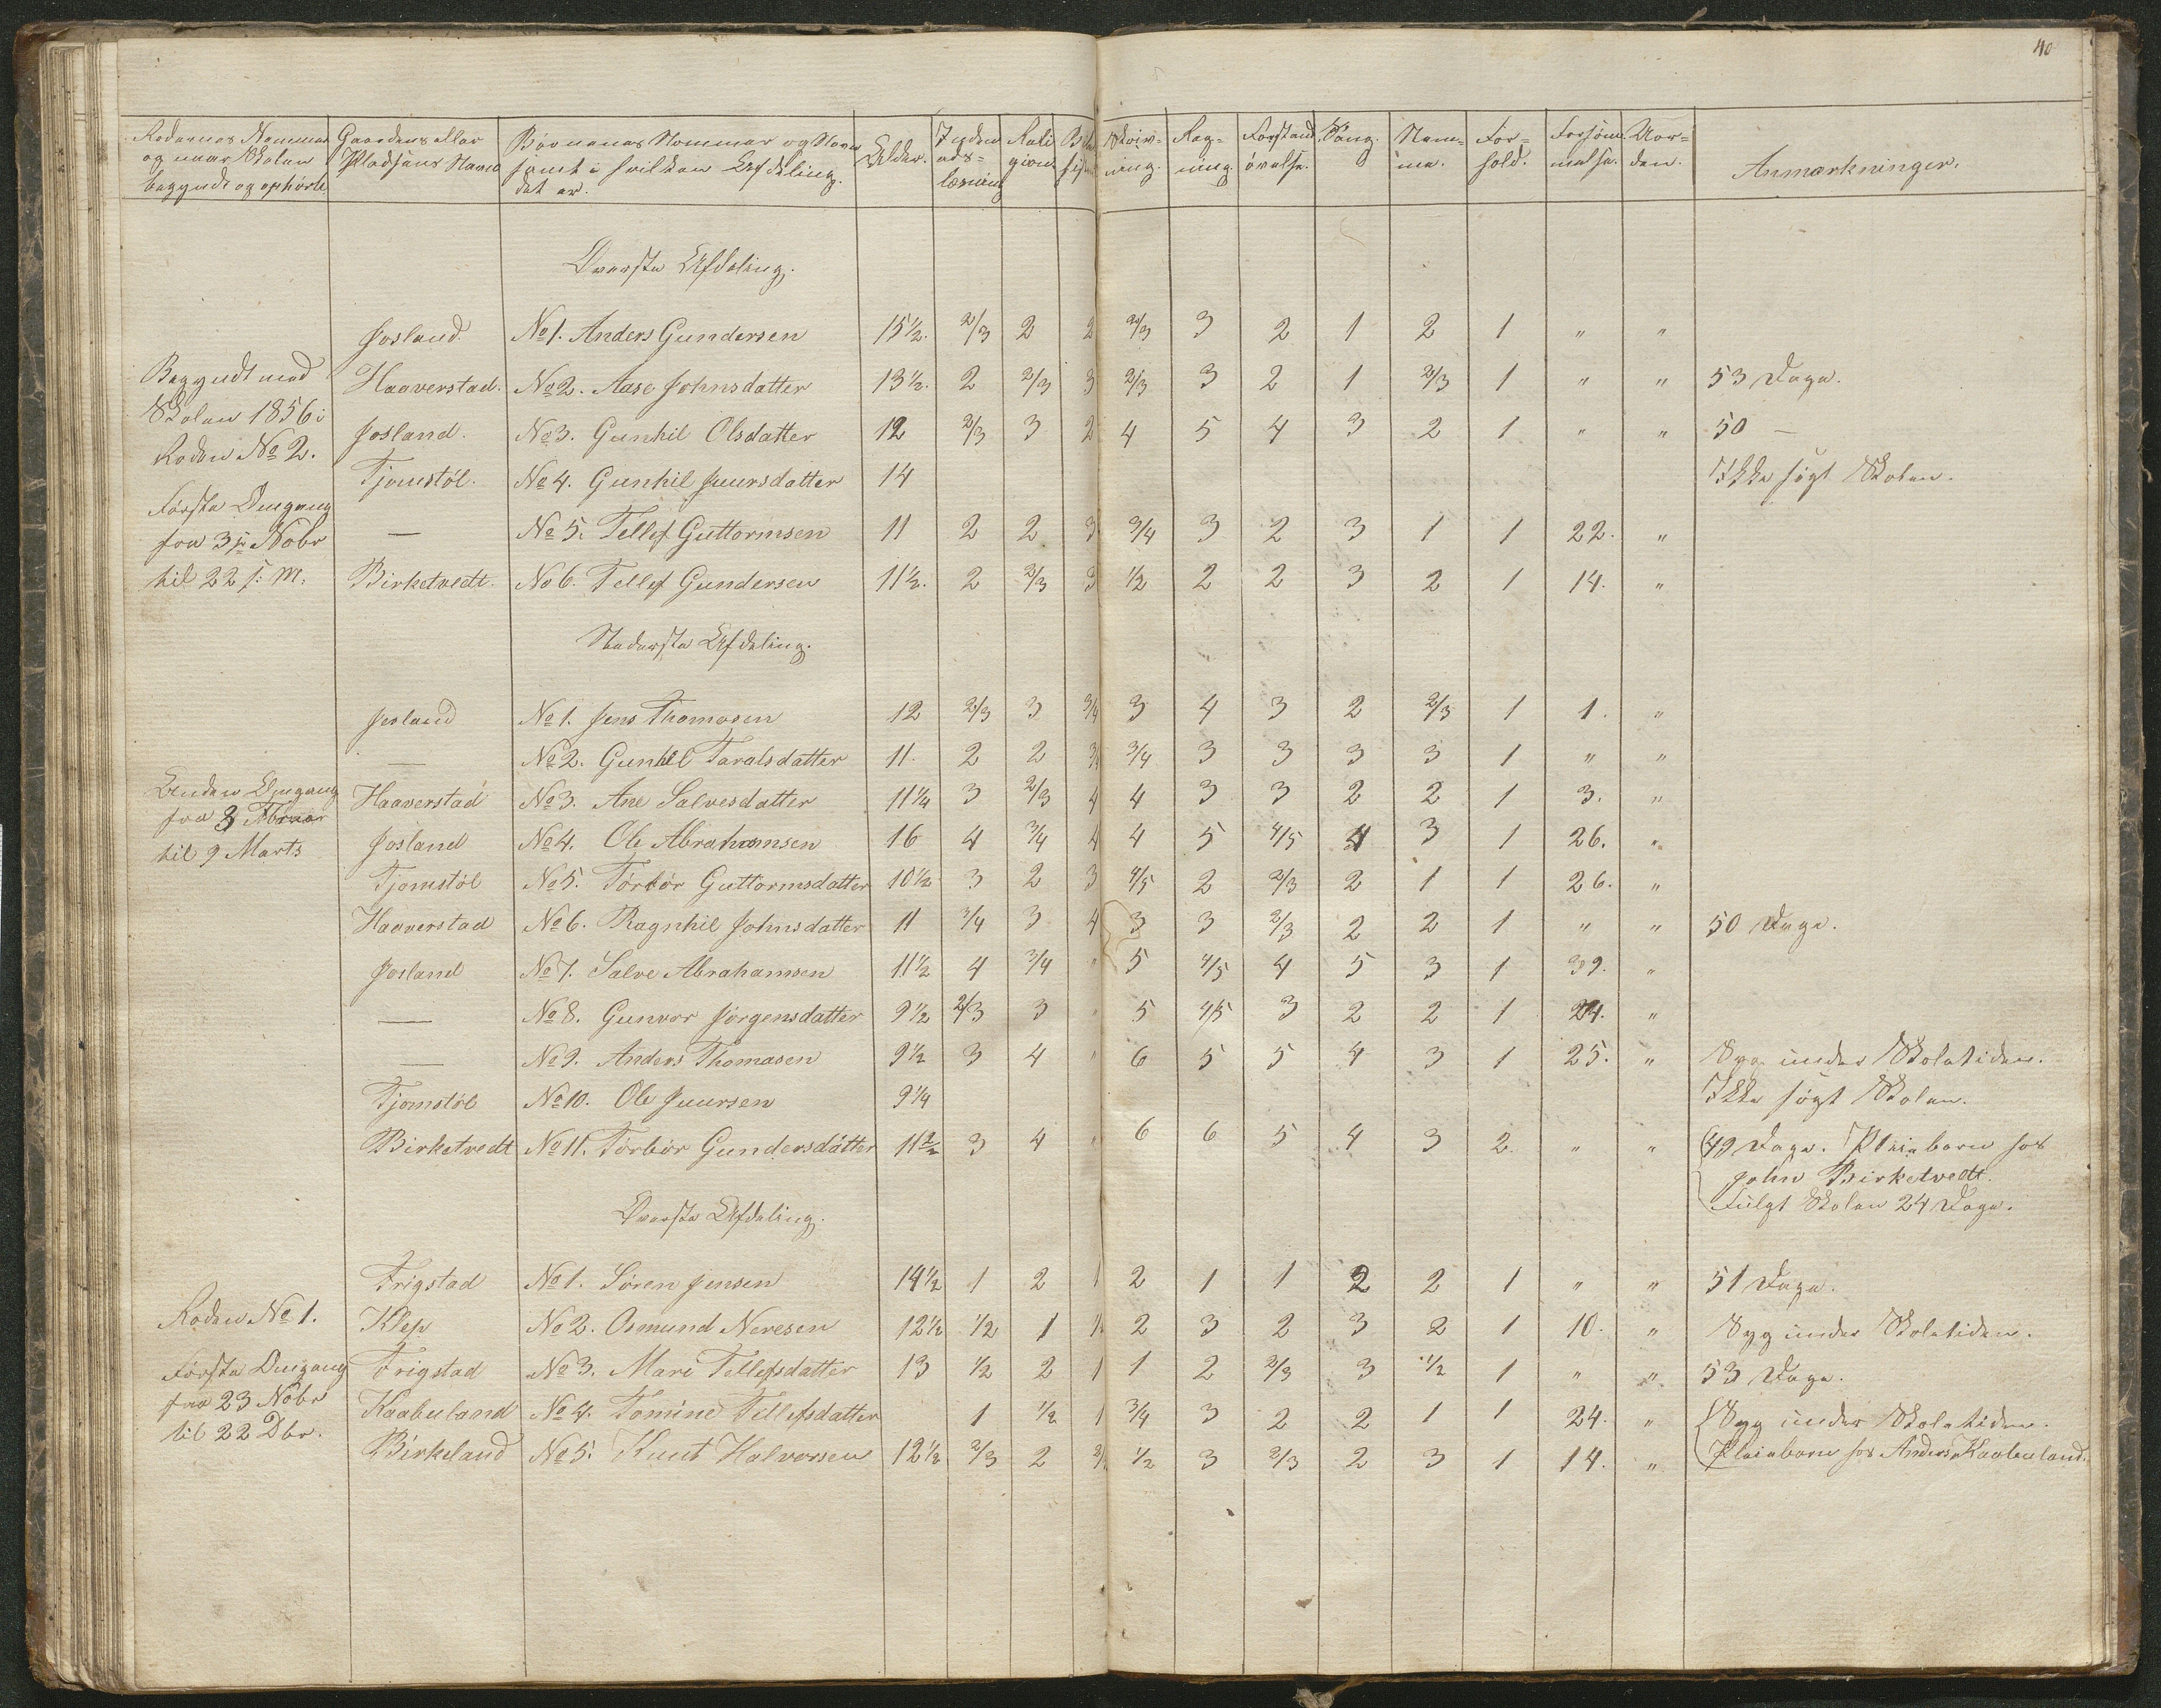 40
Rodernes Nummer og naar Skolen begyndt og ophørte | Gaardens eller Pladsens Navn | Børnenes Nummer og Navn samt i hvilken Afdeling det er. | Alder. | Inden- ads- læsning | Reli- gion. | Skriv- ning. | Reg- ning. | Forstands- øvelse. | Sang. | Nem- me. | For- hold. | Forsøm- melse. | Uor- den. | Anmærkninger.
Øverste Afdeling.
Josland. | No 1. Anders Gundersen | 15 1/2. | 2/3 | 2 | 2 | 2/3 | 3 | 2 | 1 | 2 | 1 | " | "
Begyndt med | Haaverstad. | No 2. Aase Johnsdatter | 13 1/2. | 2 | 2/3 | 3 | 2/3 | 3 | 2 | 1 | 2/3 | 1 | " | " | 53 Dage.
Skolen 1856 i | Josland. | No 3. Gunhil Olsdatter | 12 | 2/3 | 3 | 2 | 4 | 5 | 4 | 3 | 2 | 1 | " | " | 50 —
Roden No 2. | Tjomstøl. | No 4. Gunhil Juursdatter | 14 | Ikke søgt Skolen.
Første Omgang
fra 3die Nobr | — | No 5. Tellef Guttormsen | 11 | 2 | 2 | 3 | 3/4 | 3 | 2 | 3 | 1 | 1 | 22. | "
til 22 s: M: | Birketvedt. | No 6. Tellef Gundersen | 11 1/2. | 2 | 2/3 | 3 | 1/2 | 2 | 2 | 3 | 2 | 1 | 14. | "
Nederste Afdeling.
Josland | No 1. Jens Thomasen | 12 | 2/3 | 3 | 3/4 | 3 | 4 | 3 | 2 | 2/3 | 1 | 1. | "
— | No 2. Gunhil Taralsdatter | 11. | 2 | 2 | 3/4 | 3/4 | 3 | 3 | 3 | 3 | 1 | " | "
Anden Omgang | Haaverstad | No 3. Ane Salvesdatter | 11 1/4 | 3 | 2/3 | 4 | 4 | 3 | 3 | 2 | 2 | 1 | 3. | "
fra 3 Februar
til 9 Marts | Josland | No 4. Ole Abrahamsen | 16 | 4 | 3/4 | 4 | 4 | 5 | 4/5 | 4 | 3 | 1 | 26. | "
Tjomstøl | No 5. Torbør Guttormsdatter | 10 1/2 | 3 | 2 | 3 | 4/5 | 2 | 2/3 | 2 | 1 | 1 | 26. | "
Haaverstad | No 6. Ragnhil Johnsdatter | 11 | 3/4 | 3 | 4 | 3 | 3 | 2/3 | 2 | 2 | 1 | " | " | 50 Dage.
Josland | No 7. Salve Abrahamsen | 11 1/2 | 4 | 3/4 | " | 5 | 4/5 | 4 | 5 | 3 | 1 | 39. | "
— | No 8. Gunvor Jørgensdatter | 9 1/2 | 2/3 | 3 | " | 5 | 4/5 | 3 | 2 | 2 | 1 | 24. | "
— | No 9. Anders Thomasen | 9 1/2 | 3 | 4 | " | 6 | 5 | 5 | 4 | 3 | 1 | 25. | " | Syg under Skoletiden.
Tjomstøl | No 10. Ole Juursen | 9 1/4 | Ikke søgt Skolen.
Birketvedt | No 11. Torbør Gundersdatter | 11 1/2 | 3 | 4 | " | 6 | 6 | 5 | 4 | 3 | 2 | " | " | 49 Dage. Pleiebarn hos
John Birketvedt.
Fulgt Skolen 24 Dage.
Øverste Afdeling.
Frigstad | No 1. Søren Jensen | 14 1/2 | 1 | 2 | 1 | 2 | 1 | 1 | 2 | 2 | 1 | " | " | 51 Dage.
Roden No 1. | Klep | No 2. Osmund Neresen | 12 1/2 | 1/2 | 1 | 2 | 3 | 2 | 3 | 2 | 1 | 10. | " | Syg under Skoletiden.
Første Omgang | Frigstad | No 3. Mari Tellefsdatter | 13 | 1/2 | 2 | 1 | 1 | 2 | 2/3 | 3 | 1/2 | 1 | " | " | 53 Dage.
fra 23 Nobr | Kaabuland | No 4. Tomine Tellefsdatter | 1 | 1/2 | 1 | 3/4 | 3 | 2 | 2 | 1 | 1 | 24. | " | Syg under Skoletiden.
til 22 Dbr. | Birkeland | No 5. Knut Halvorsen | 12 1/2 | 2/3 | 2 | 1/2 | 3 | 2/3 | 2 | 3 | 1 | 14. | " | Pleiebarn hos Anders Kaabuland.